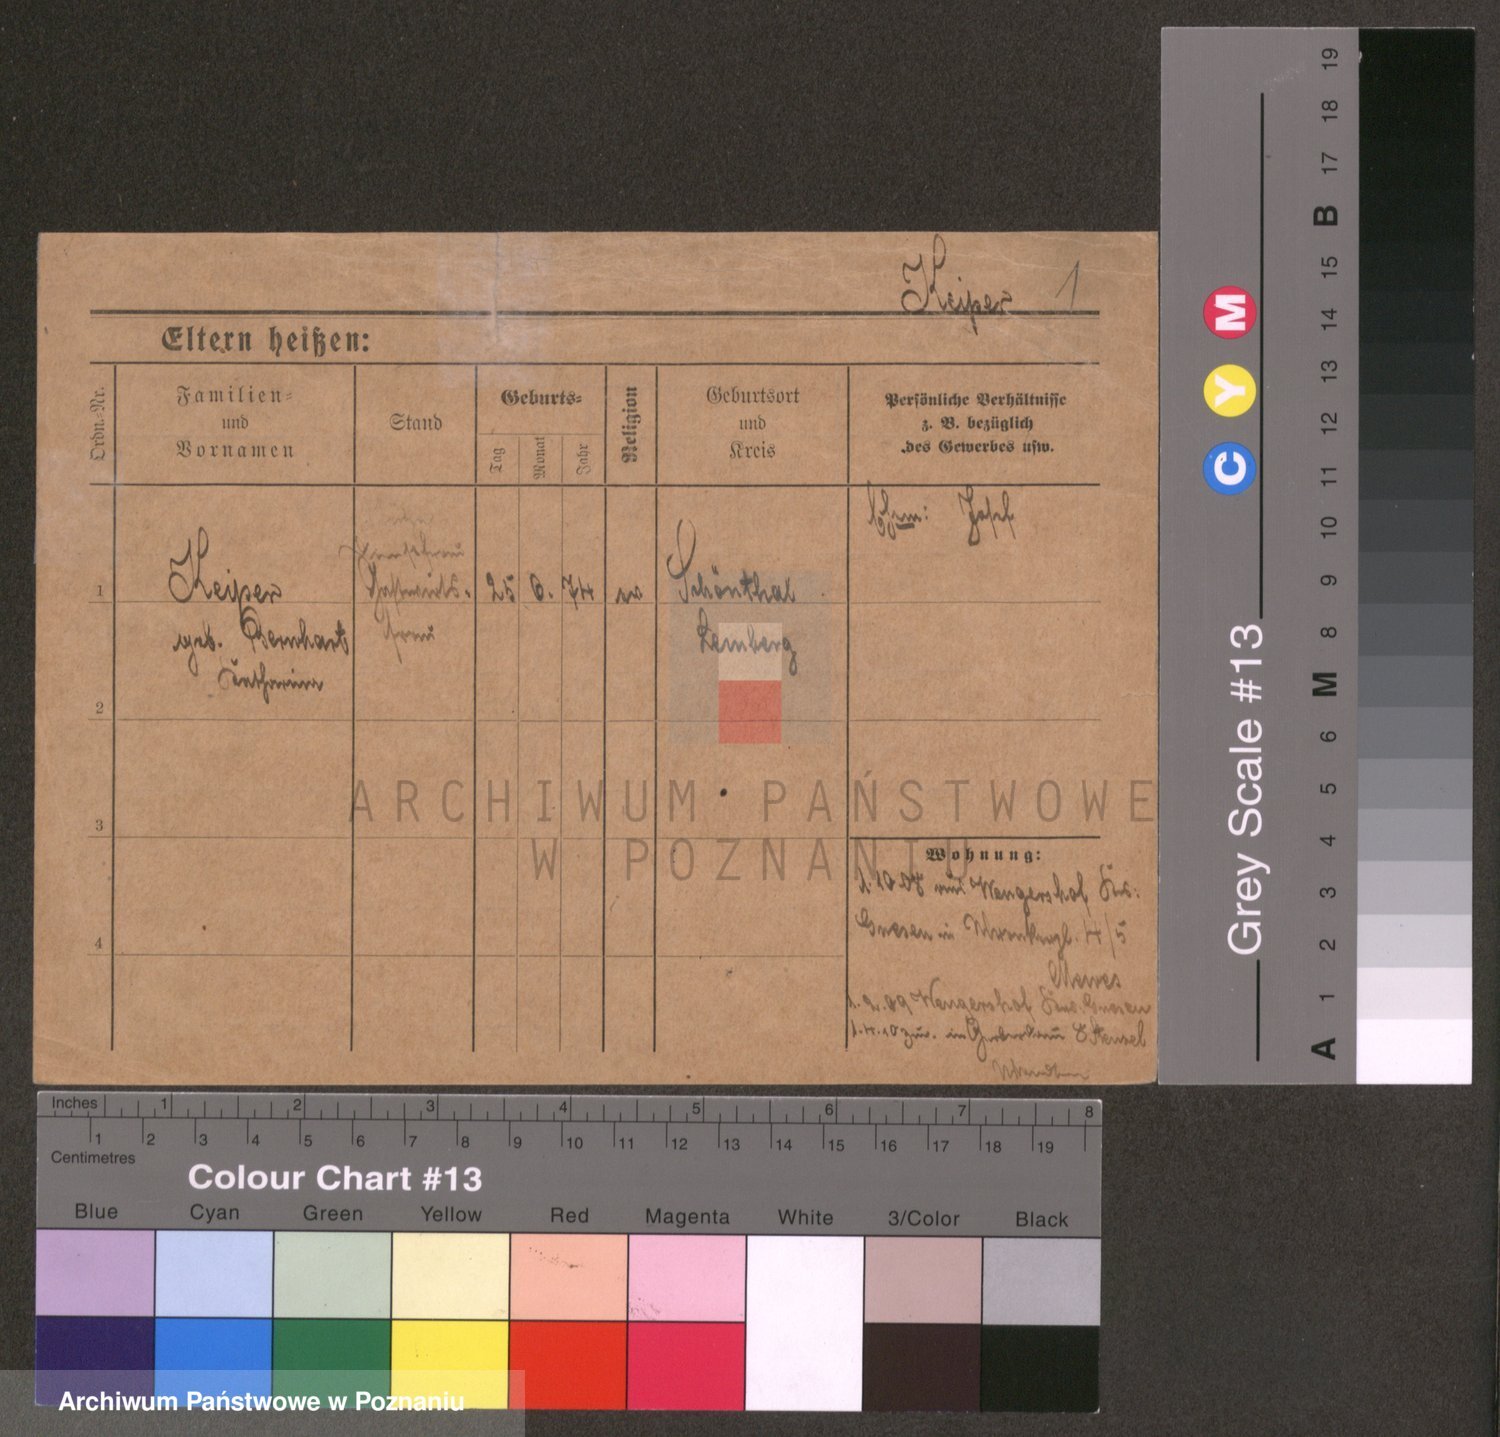 Keiper 1
Eltern heißen:
Ordn.-Nr.
Familien-
und
Vornamen
Stand
Geburts-
Tag
Monat
Jahr
Religion
Geburtsort
und
Kreis
Persönliche Verhältnisse
z. B. bezüglich
des Gewerbes usw.
Ehem: Josef
1
Keiper
geb. Bernhart
Gastwirts-
frau
25 6. 74
ev
Schönthal
Lemberg
2
3
4
Wohnung:
1.10.08 von Wengershof Krs:
Gnesen in 4/5
Mewes
1.2.09 Wengershof Krs. Gnesen
1.4.10 zur. in
ARCHIWUM PAŃSTWOWE
W POZNANIU
Grey Scale #13
C Y M
A 1 2 3 4 5 6 M 8 9 10 11 12 13 14 15 B 17 18 19
Inches 1 2 3 4 5 6 7 8
1 2 3 4 5 6 7 8 9 10 11 12 13 14 15 16 17 18 19
Centimetres
Colour Chart #13
Blue Cyan Green Yellow Red Magenta White 3/Color Black
Archiwum Państwowe w Poznaniu